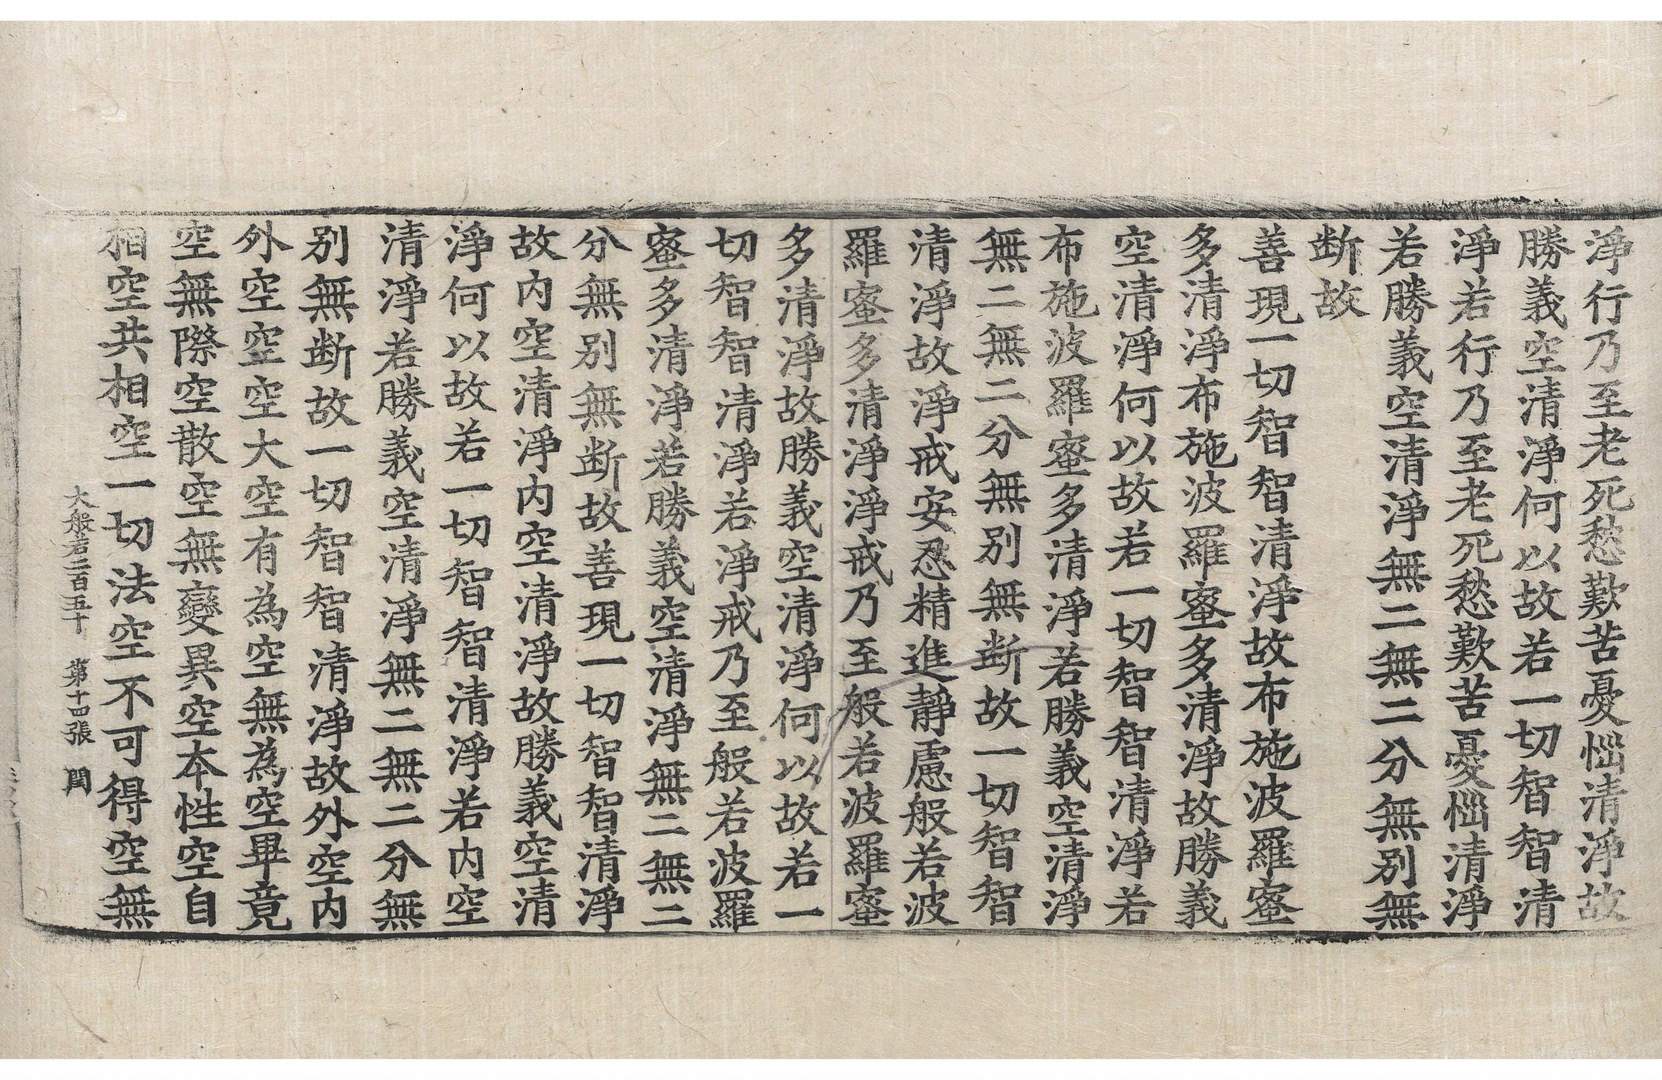 淨行乃至老死愁歎苦憂惱清淨故
勝義空清淨何以故若一切智智清
淨若行乃至老死愁歎苦憂惱清淨
若勝義空清淨無二無二分無別無
断故
善現一切智智清淨故布施波羅蜜
多清淨布施波羅蜜多清淨故勝義
空清淨何以故若一切智智清淨若
布施波羅蜜多清淨若勝義空清淨
無二無二分無別無断故一切智智
清淨故淨戒安忍精進靜慮般若波
羅蜜多清淨淨戒乃至般若波羅蜜
多清淨故勝義空清淨何以故若一
切智智清淨若淨戒乃至般若波羅
蜜多清淨若勝義空清淨無二無二
分無別無断故善現一切智智清淨
故内空清淨内空清淨故勝義空清
淨何以故若一切智智清淨若内空
清淨若勝義空清淨無二無二分無
別無断故一切智智清淨故外空内
外空空空大空有為空無為空畢竟
空無際空散空無變異空本性空自
相空共相空一切法空不可得空無
大般若二百五十 第十四張 閏